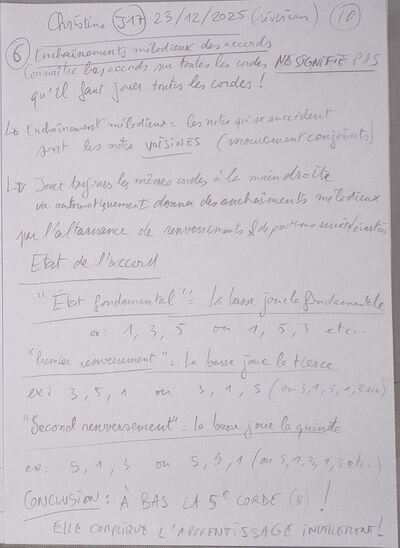 Christine J17 23/12/2025 (vivism) 10
6 Enchaînements mélodieux des accords
Connaître les accords sur toutes les cordes NE SIGNIFIE PAS
qu'il faut jouer toutes les cordes !
Enchaînement mélodieux = les notes qui se succèdent
sont les notes VOISINES (mouvement conjoints)
Jouer toujours les mêmes cordes à la main droite
va automatiquement donner des enchaîments mélodieux
par l'alternance de renversements & de positions serrées/écartées
Etat de l'accord
"État fondamental" = La basse joue la fondamentale
ex: 1, 3, 5 ou 1, 5, 3 etc..
"Premier renversement" = La basse joue la tierce
ex: 3, 5, 1 ou 3, 1, 5 (ou 3, 1, 5, 1, 3
"Second renversement" = La basse joue la quinte
ex: 5, 1, 3 ou 5, 1 (ou 5, 1, 3, 1, 5 etc..)
CONCLUSION : À BAS LA 5e CORDE !
ELLE COMPLIQUE L'APPRENTISSAGE INUTILEMENT !